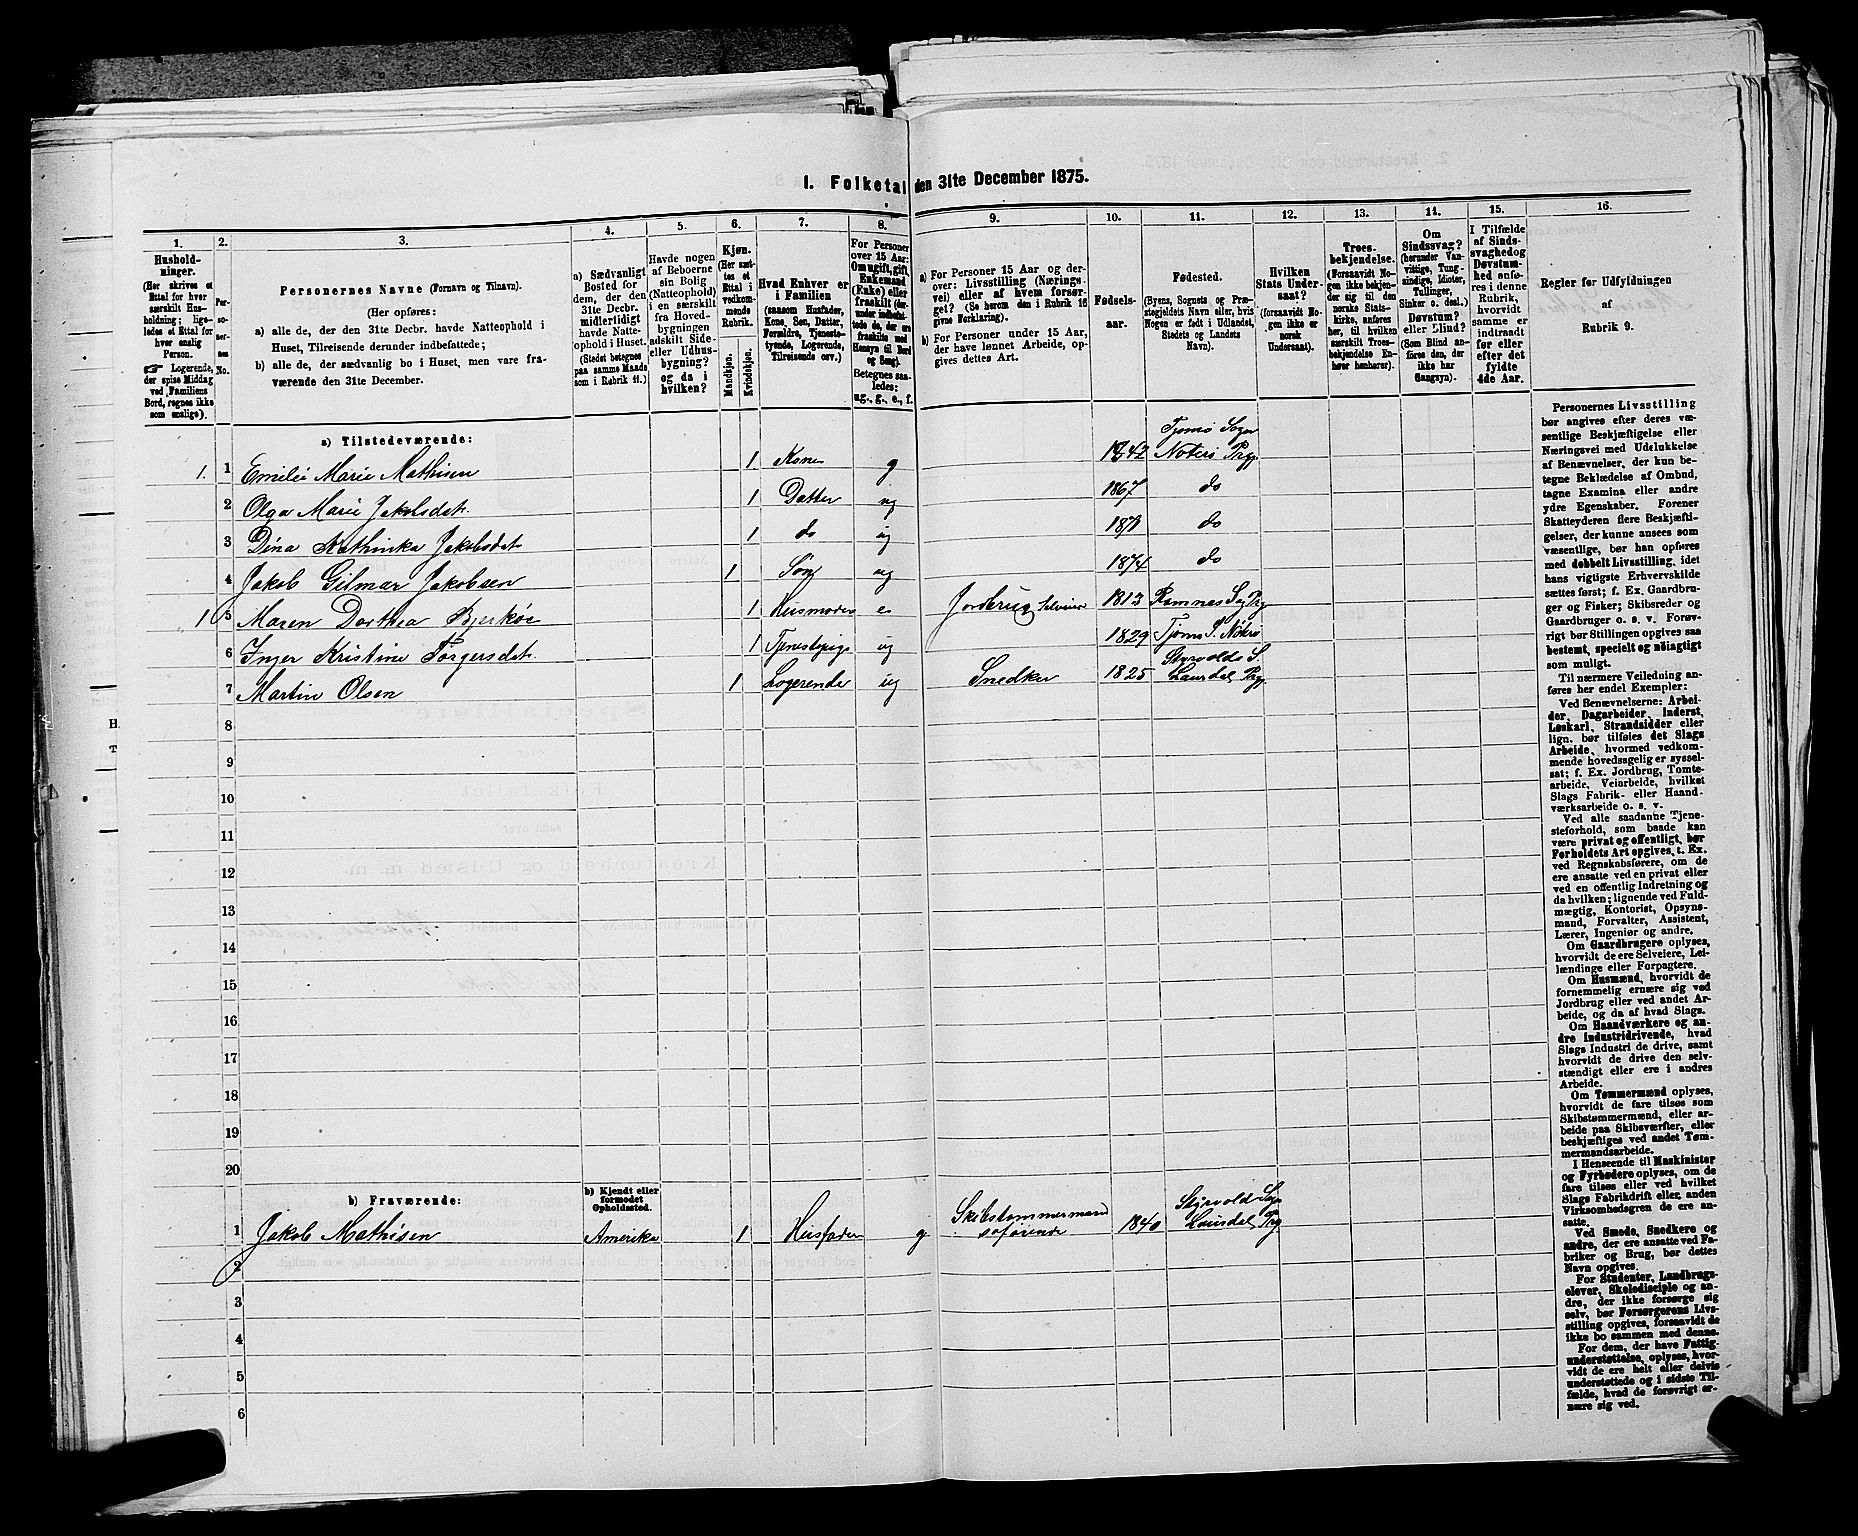 1. Folketal den 31te December 1875.
1. 2. 3. 4. 5. 6. 7. 8. 9. 10. 11. 12. 13. 14. 15. 16.
Husholdninger.
(Her skrives et
Ettal for hver
særskilt Husholdning;
ligeledes et Ettal for
hver enslig
Person.
☞ Logerende,
der spise Middag
ved Familiens
Bord, regnes ikke
som enslige).
Personernes No.
Personernes Navne (Fornavn og Tilnavn).
(Her opføres:
a) alle de, der den 31te Decbr. havde Natteophold i
Huset, Tilreisende derunder indbefattede;
b) alle de, der sædvanlig bo i Huset, men vare fraværende
den 31te December.
a) Sædvanligt
Bosted for
dem, der den
31te Decbr.
midlertidigt
havde Natteophold
i Huset.
(Stedet betegnes
paa samme Maade
som i Rubrik 11.)
Havde nogen
af Beboerne
sin Bolig
(Natteophold)
i en særskilt
fra Hovedbygningen
adskilt Side-
eller Udhusbygning?
og da i
hvilken?
Kjøn.
(Her sættes
et
Ettal i
vedkommende
Rubrik.
Mandkjøn.
Kvindekjøn.
Hvad Enhver er
i Familien
(saasom Husfader,
Kone, Søn, Datter,
Forældre, Tjenestetyende,
Logerende,
Tilreisende osv.)
For Personer
over 15 Aar:
Om ugift, gift,
Enkemand
(Enke) eller
fraskilt (derunder
indbefattede
de, der ere
fraskilte med
Hensyn til Bord
og Seng).
Betegnes saaledes:
ug., g., e., f.
a) For Personer 15 Aar og derover:
Livsstilling (Næringsvei)
eller af hvem forsørget?
(Se herom den i Rubrik 16
givne Forklaring).
b) For Personer under 15 Aar,
der have lønnet Arbeide, opgives
dettes Art.
Fødselsaar.
Fødested.
(Byens, Sognets og Præstegjeldets
Navn eller, hvis
Nogen er født i Udlandet,
Stedets og Landets
Navn).
Hvilken
Stats Undersaat?
(forsaavidt Nogen
ikke er
norsk
Undersaat).
Troesbekjendelse.
(Forsaavidt Nogen
ikke bekjender
sig til den
norske Statskirke,
anføres
her, til hvilken
særskilt Troesbekjendelse
Enhver
henhører).
Om
Sindssvag?
(herunder Vanvittige,
Tungsindige,
Idioter,
Tullinger,
Sinker o. desl.)
Døvstum?
eller Blind?
(Som Blind anføres
den, der
ikke har
Gangsyn).
I Tilfælde
af Sindssvaghed
og
Døvstumhed
anføres
i denne
Rubrik,
hvorvidt
samme er
indtraadt
før eller
efter det
fyldte
4de Aar.
Regler for Udfyldningen
af
Rubrik 9.
a) Tilstedeværende:
1. 1 Emilie Marie Mathisen 1 Kone g 1842 Tjømø Sogn
Nøterø Prg
2 Olga Marie Jakobsdat. 1 Datter ug 1867 do
3 Dina Mathinka Jakobsdat 1 do ug 1871 do
4 Jakob Gilmar Jakobsen 1 Søn ug 1874 do
1 5 Maren Dorthea Bjerkøe 1 Husmoder e Jordbrug Selveier 1813 Ramnes Sog Prg
6 Inger Kristine Torgersdat. 1 Tjenestepige ug 1829 Tjømø S. Nøterø
7 Martin Olsen 1 Logerende ug Snedker 1825 Styrvolds S.
Laurdal Prg
8
9
10
11
12
13
14
15
16
17
18
19
20
b) Fraværende:
b) Kjendt eller
formodet
Opholdssted.
1 Jakob Mathisen Amerika 1 Husfader g Skibstømmermand
søfarende 1840 Styrvold Sogn
Laurdal Prg
2
3
4
5
6
Personernes Livsstilling
bør angives efter deres væsentlige
Beskjæftigelse eller
Næringsvei med Udelukkelse
af Benævnelser, der kun betegne
Beklædelse af Ombud,
tagne Examina eller andre
ydre Egenskaber. Forener
Skatteyderen flere Beskjæftigelser,
der kunne ansees som
væsentlige, bør han opføres
med dobbelt Livsstilling, idet
hans vigtigste Erhvervskilde
sættes først; f. Ex. Gaardbruger
og Fisker; Skibsreder og
Gaardbruger o. s. v. Forøvrigt
bør Stillingen opgives saa
bestemt, specielt og nøiagtigt
som muligt.
Til nærmere Veiledning anføres
her endel Exempler:
Ved Benævnelserne: Arbeider,
Dagarbeider, Inderst,
Løskarl, Strandsidder eller
lign. bør tilføies det Slags
Arbeide, hvormed vedkommende
hovedsagelig er sysselsat;
f. Ex. Jordbrug, Tomtearbeide,
Veiarbeide, hvilket
Slags Fabrik- eller Haandværksarbeide
o. s. v.
Ved alle saadanne Tjenesteforhold,
som baade kan
være privat og offentligt, bør
Forholdets Art opgives, t. Ex.
ved Regnskabsførere, om de
ere ansatte ved en privat eller
ved en offentlig Indretning og
da hvilken; lignende ved Fuldmægtig,
Kontorist, Opsynsmand,
Forvalter, Assistent,
Lærer, Ingeniør og andre.
Om Gaardbrugere oplyses,
hvorvidt de ere Selveiere, Leilændinge
eller Forpagtere.
Om Husmænd, hvorvidt de
fornemmelig ernære sig ved
Jordbrug eller ved andet Arbeide,
og da af hvad Slags.
Om Haandværkere og andre
industridrivende, hvad
Slags Industri de drive, samt
hvorvidt de drive den selvstændigt
eller ere i andres
Arbeide.
Om Tømmermænd oplyses,
hvorvidt de fare tilsøs som
Skibstømmermænd, eller arbeide
paa Skibsværfter, eller
beskjæftiges ved andet Tømmermandsarbeide.
I Henseende til Maskinister
og Fyrbødere oplyses, om de
fare tilsøs eller ved hvilket
Slags Fabrikdrift eller anden
Virksomhedsgren de ere ansatte.
Ved Smede, Snedkere og
andre, der ere ansatte ved Fabriker
og Brug, bør dettes
Navn opgives.
For Studenter, Landbrugselever,
Skoledisciple og andre,
der ikke forsørge sig
selv, bør Forsørgerens Livsstilling
opgives, forsaavidt de
ikke bo sammen med denne.
For dem, der have Fattigunderstøttelse,
oplyses, hvorvidt
de ere helt eller delvis
understøttede og i sidste Tilfælde,
hvad de forøvrigt ernære
sig ved.